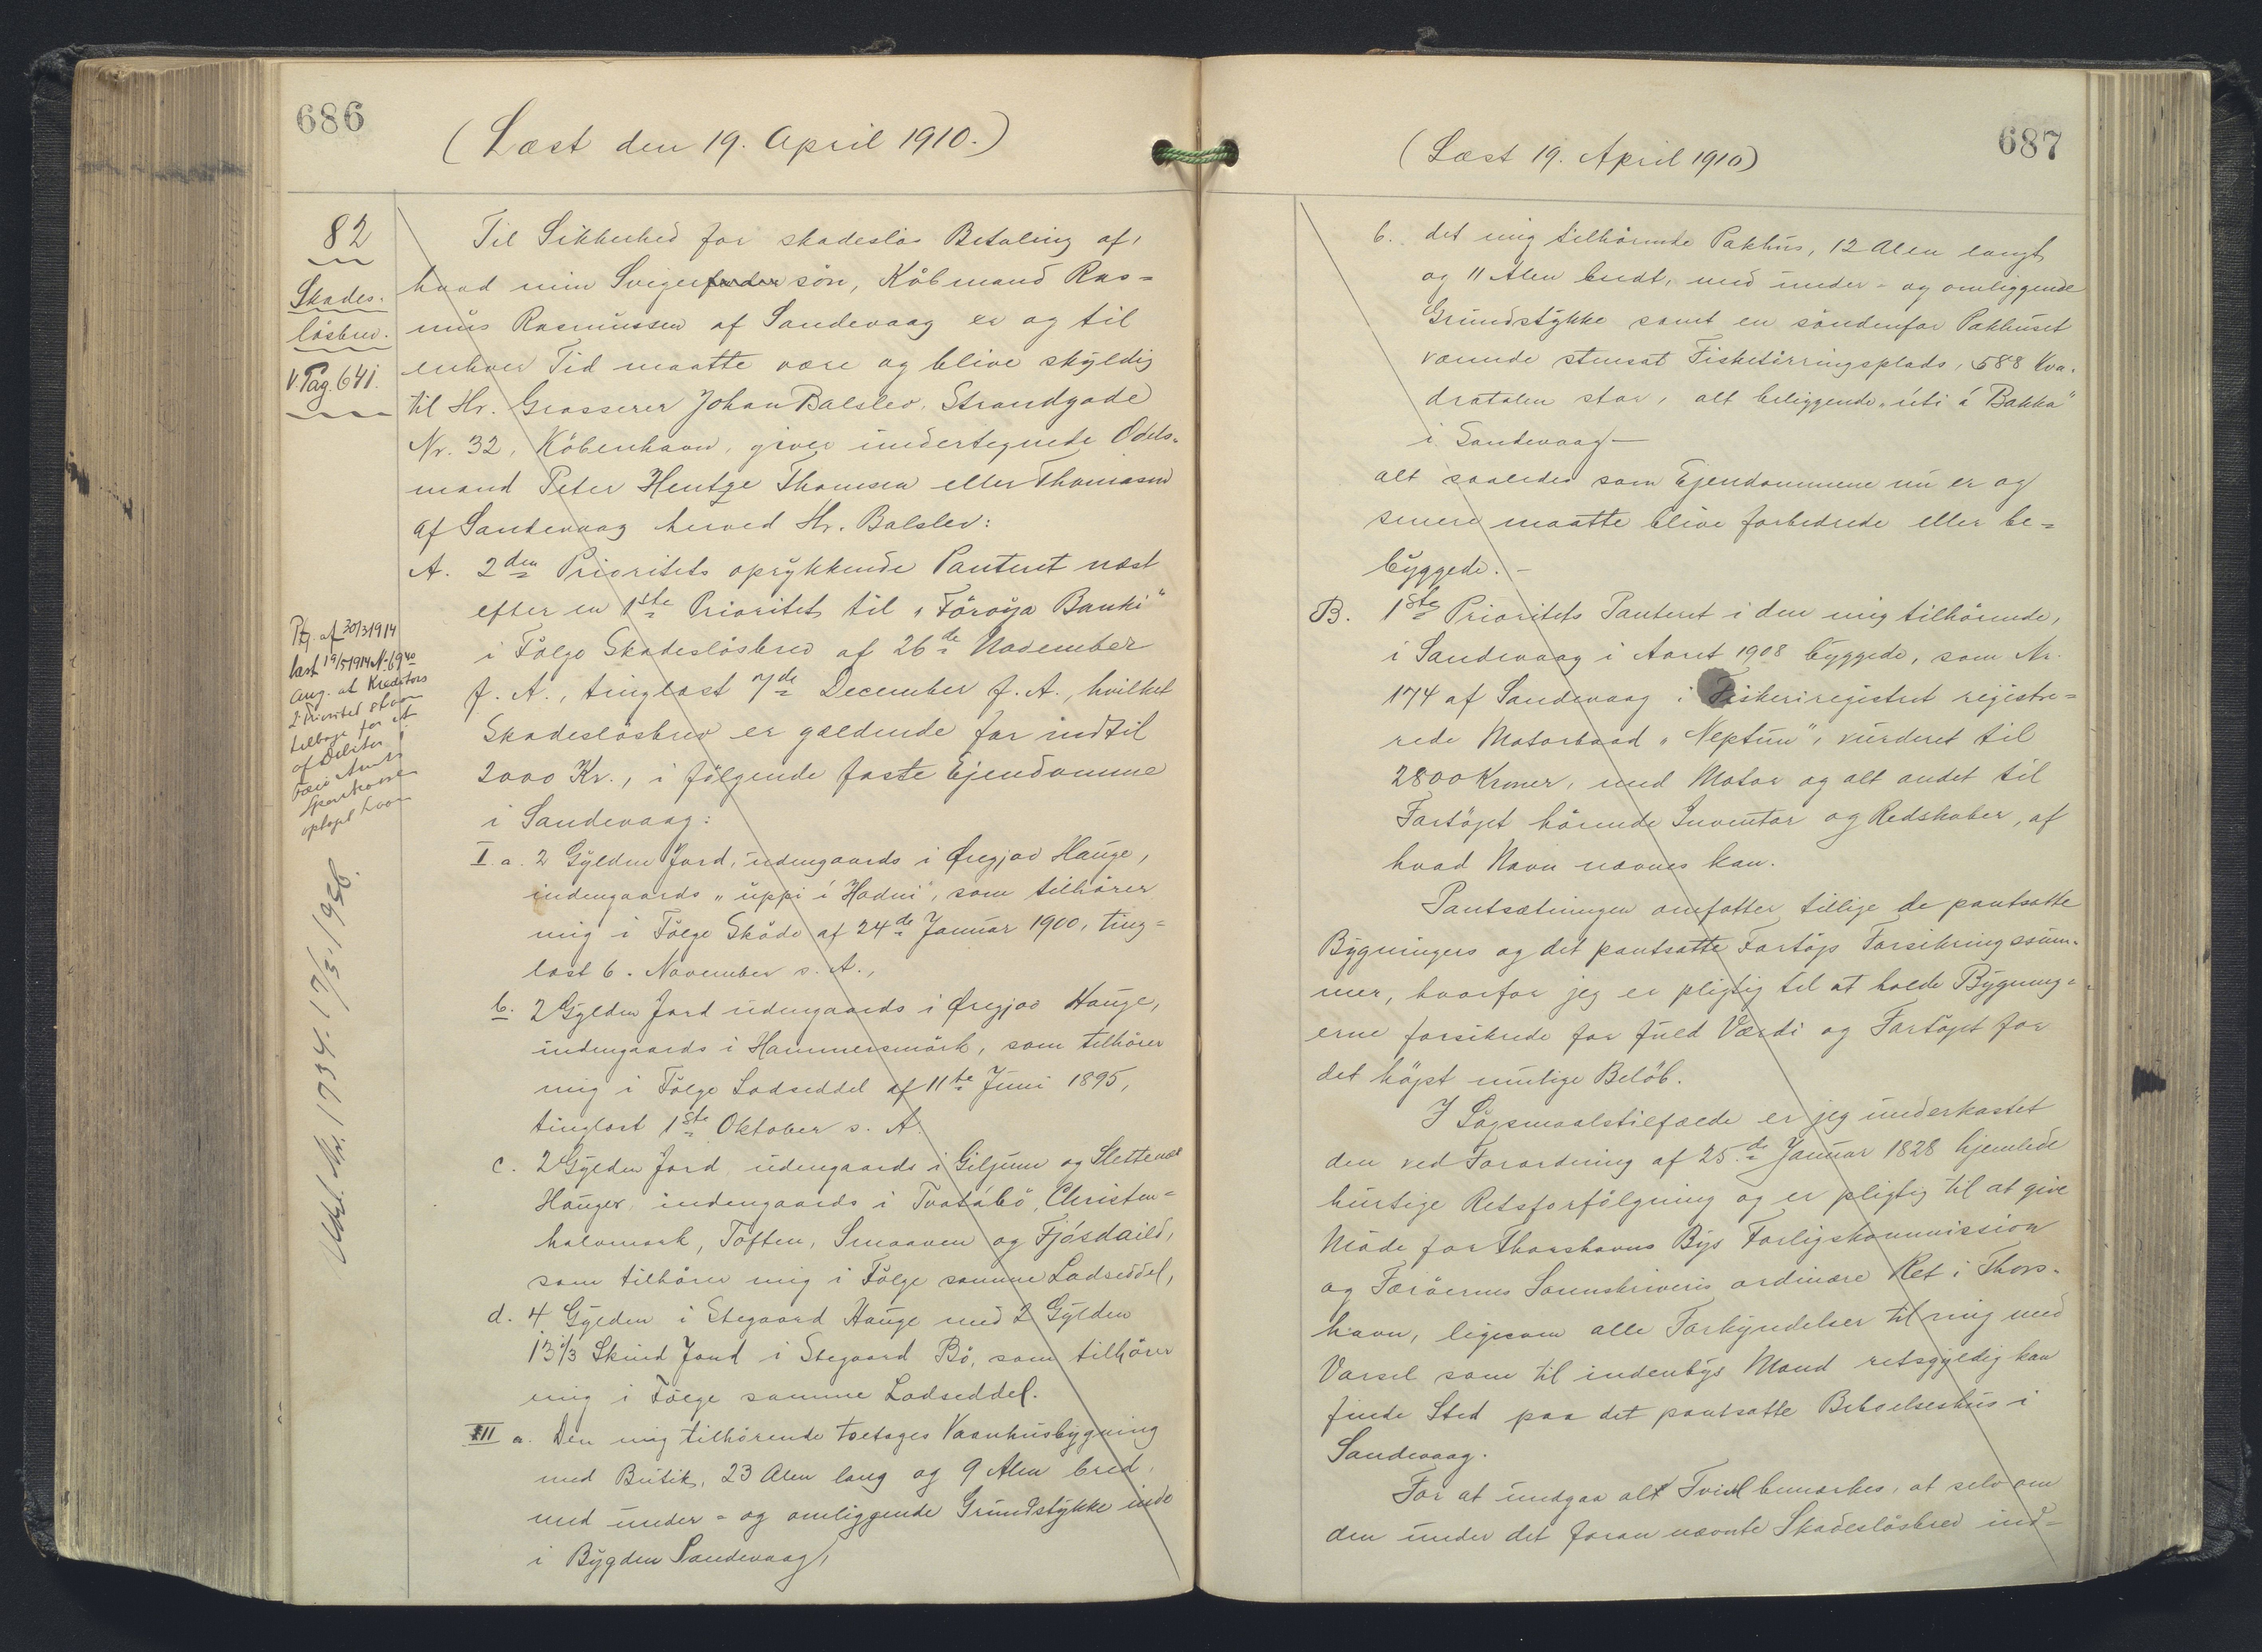 686
(Læst den 19. April 1910.)
82
Skades-
løsbrev.
V. Pag. 641.
Til Sikkerhed for skadesløs Betaling af,
hvad min Svigerfader søn, Købmand Ras=
mus Rasmussen af Sandevaag er og til
enhver Tid maatte være og blive skyldig
til Hr. Grosserer Johan Balslev, Strandgade
Nr. 32, København, giver undertegnede Odels-
mand Peter Hentze Thomsen eller Thomasen
af Sandevaag herved Hr. Balslev:
A. 2den Prioritets oprykkende Panteret næst
efter en 1ste Prioritet til "Föroya Banki"
i Følge Skadesløsbrev af 26de November
f. A., tinglæst 7de December f. A., hvilket
Skadesløsbrev er gældende for indtil
2000 Kr., i følgende faste Ejendomme
i Sandevaag:
I. a. 2 Gylden Jord, udengaards i Øregjov Hauge,
indengaards "uppi i Hadni", som tilhører
mig i Følge Skøde af 24de Januar 1900, ting=
læst 6. November s. A.,
b. 2 Gylden Jord udengaards i Øregjov Hauge,
indengaards i Hammersmørk, som tilhører
mig i Følge Lodseddel af 11te Juni 1895,
tinglæst 1ste Oktober s. A.
c. 2 Gylden Jord, udengaards i Giljum og Slettenæs
Hauger, indengaards i Tvatábø, Christen=
halvmark, Toften, Smaaven og Fjósdaild,
som tilhører mig i Følge samme Lodseddel,
d. 4 Gylden i Stegaard Hauge med 2 Gylden
13 1/3 Skind Jord i Stegaard Bø, som tilhører
mig i Følge samme Lodseddel.
II a. Den mig tilhørende toetages Vaanhusbygning
med Butik, 23 Alen lang og 9 Alen bred,
med under= og omliggende Grundstykke inde
i Bygden Sandevaag,
Ptg. af 30/3 1914
læst 19/5 1914 N. 69
ang. at Kreditors
2 Prioritet staar
tilbage for et
af Debitor i
Færø Amts
Sparekasse
optaget Laan
Udsl. Nr. 1734. 17/5. 1956.
687
(Læst 19. April 1910)
b. det mig tilhørende Pakhus, 12 Alen langt
og 11 Alen bredt, med under= og omliggende
Grundstykke samt en søndenfor Pakhuset
værende stensat Fisketørringsplads, 588 Kva-
dratalen stor, alt beliggende "úti á Bakka"
i Sandevaag —
alt saaledes som Ejendommene nu er og
senere maatte blive forbedrede eller be=
byggede. —
B. 1ste Prioritets Panteret i den mig tilhørende,
i Sandevaag i Aaret 1908 byggede, som Nr.
174 af Sandevaag i Fiskeriregistret registre=
rede Motorbaad "Neptun", vurderet til
2800 Kroner, med Motor og alt andet til
Fartøjet hørende Inventar og Redskaber, af
hvad Navn nævnes kan.
Pantsætningen omfatter tillige de pantsatte
Bygningers og det pantsatte Fartøjs Forsikringssum-
mer, hvorfor jeg er pligtig til at holde Bygning=
erne forsikrede for fuld Værdi og Fartøjet for
det højst mulige Beløb.
I Søgsmaalstilfælde er jeg underkastet
den ved Forordning af 25.de Januar 1828 hjemlede
hurtige Retsforfølgning og er pligtig til at give
Møde for Thorshavns Bys Forligskommission
og Færøernes Sorenskriveris ordinære Ret i Thors-
havn, ligesom alle Forkyndelser til mig med
Varsel som til indenbys Mand retsgyldig kan
finde Sted paa det pantsatte Beboelseshus i
Sandevaag.
For at undgaa alt Tvivl bemærkes, at selv om
den under det foran nævnte Skadesløsbrev ind=